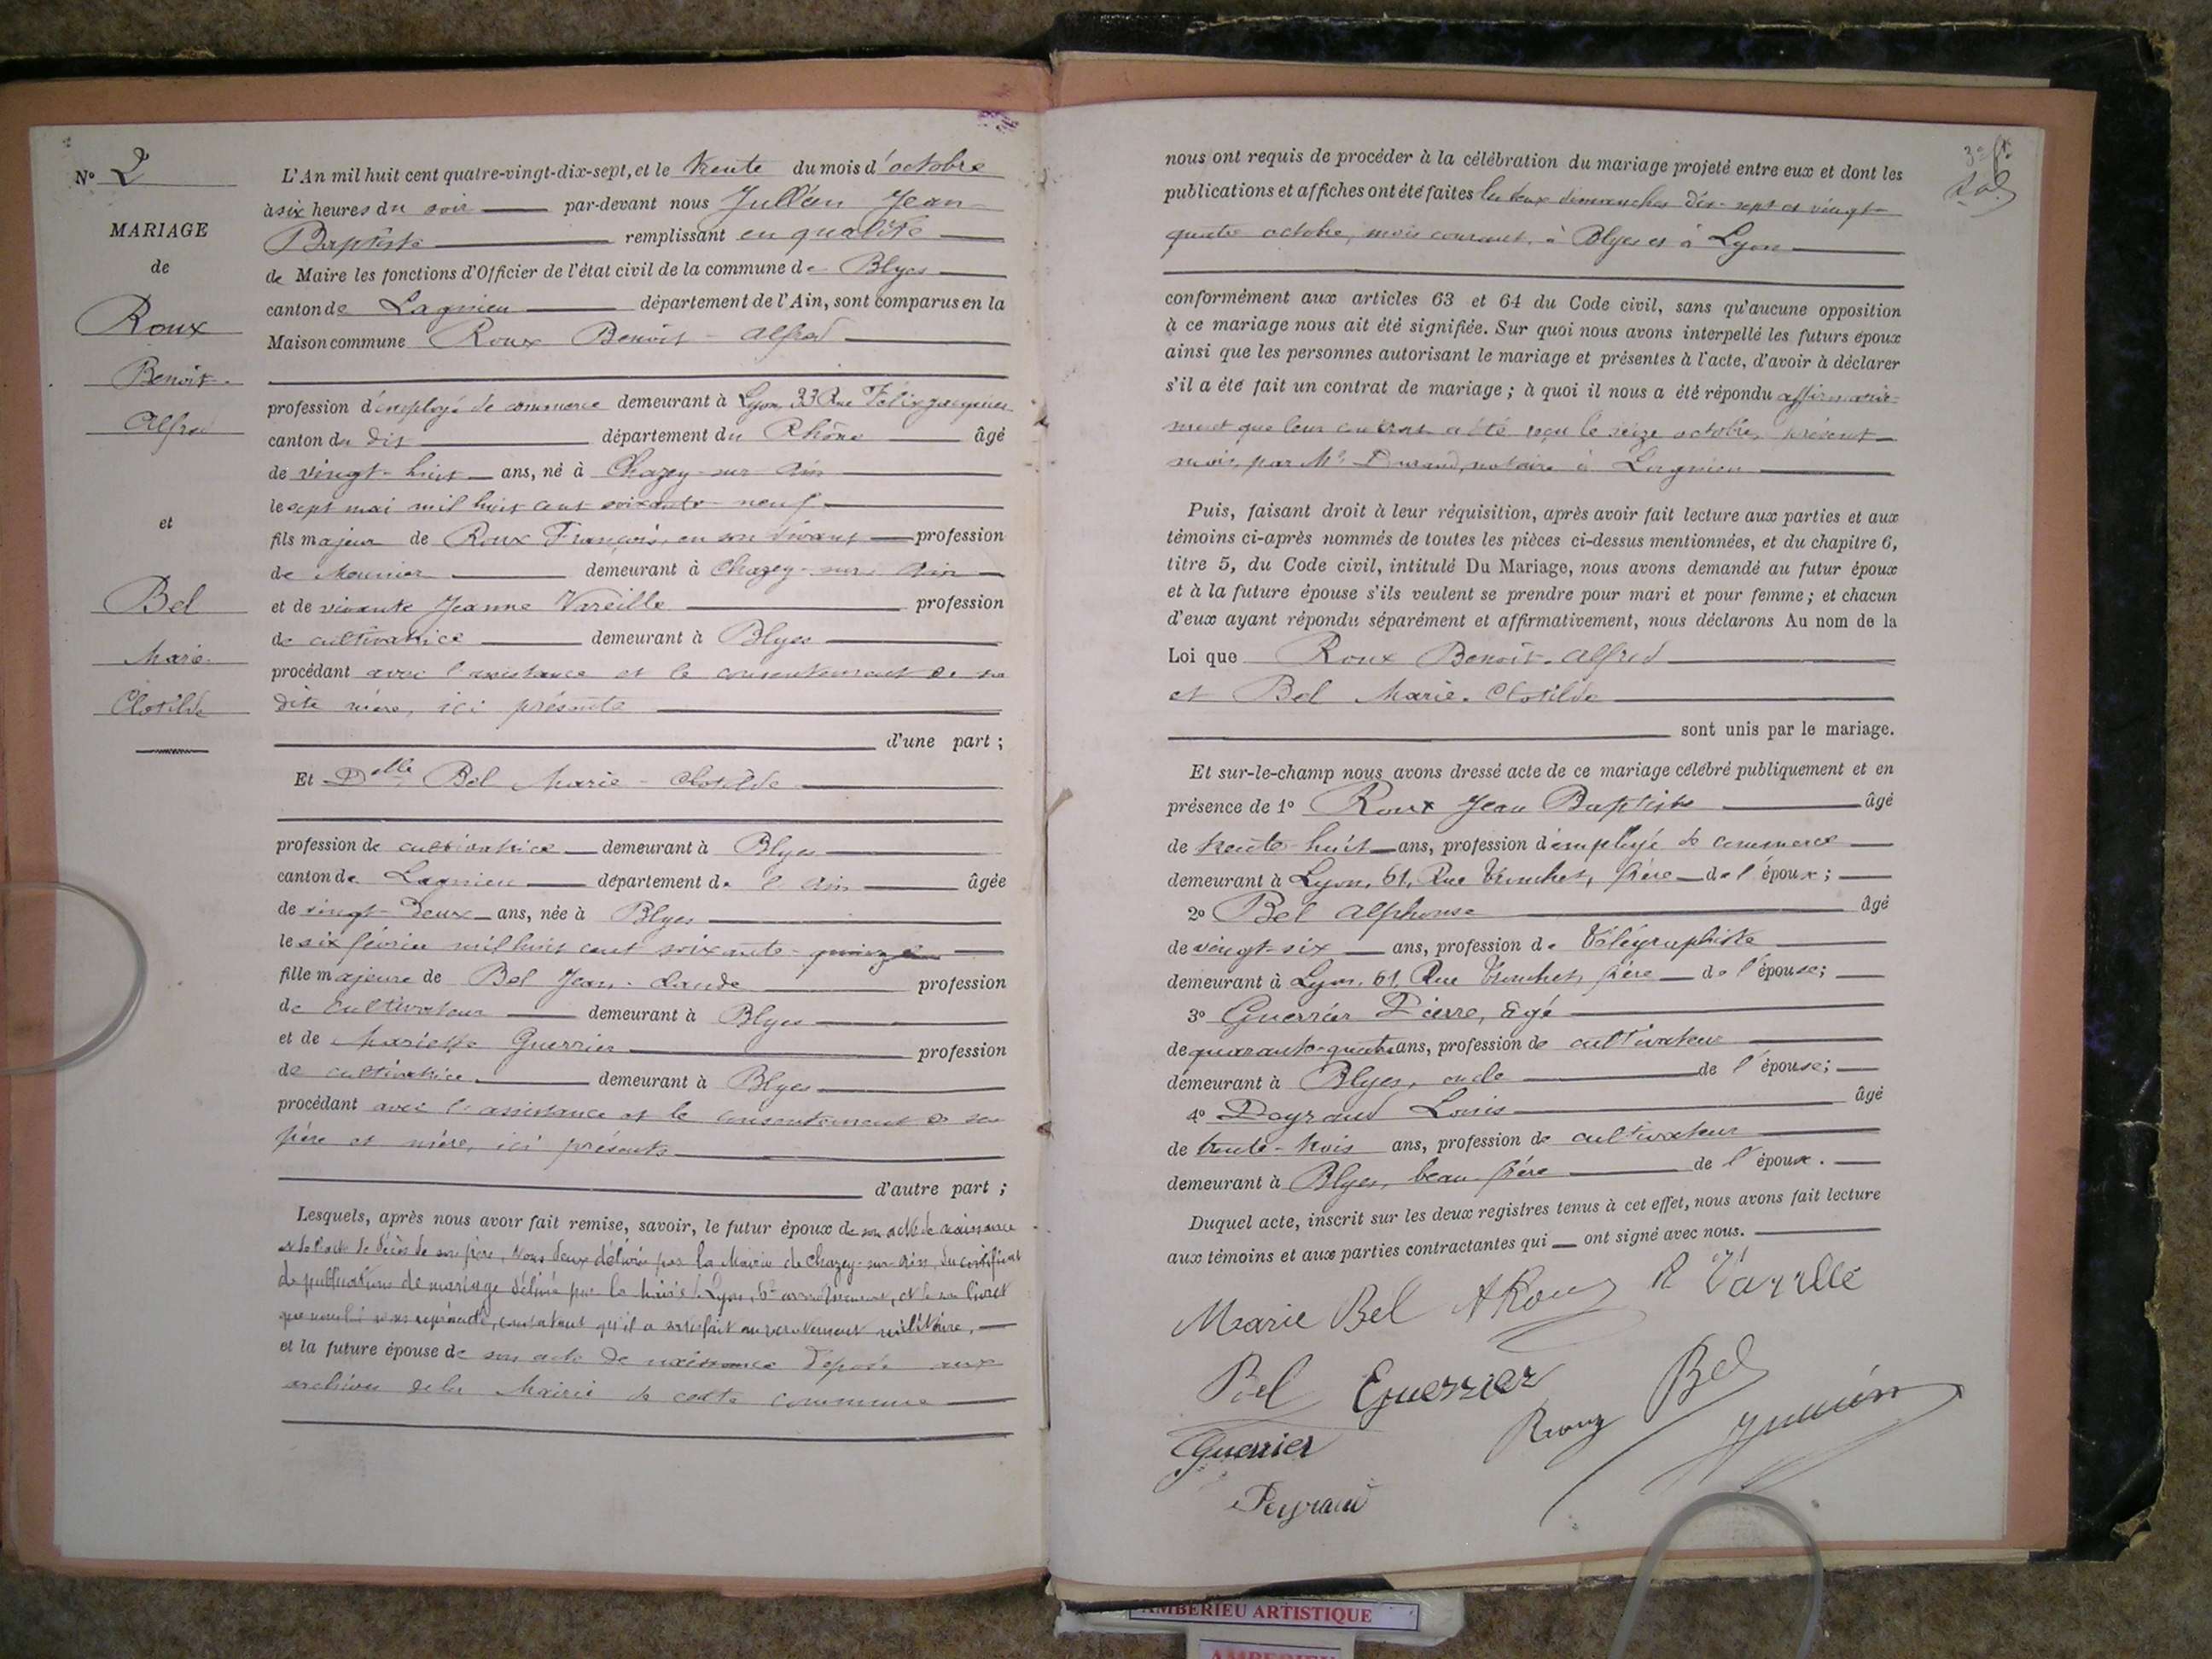 N° 2
MARIAGE
de
Roux
Benoit
Alfred
et
Bel
Marie
Clotilde
L'An mil huit cent quatre-vingt-dix-sept, et le trente du mois d'octobre
à six heures du soir par-devant nous Jullien Jean
Baptiste remplissant en qualité
de Maire les fonctions d'Officier de l'état civil de la commune de Blyes
canton de Lagnieu département de l'Ain, sont comparus en la
Maison commune Roux Benoit-Alfred
profession d'employé de commerce demeurant à Lyon, 33 Rue
canton du dit département du Rhône âgé
de vingt-huit ans, né à Chazey-sur-Ain
le sept mai mil huit cent soixante-neuf
fils majeur de Roux François, en son vivant profession
de Meunier demeurant à Chazey-sur-Ain
et de vivante Jeanne Vareille profession
de cultivatrice demeurant à Blyes
procédant avec l'assistance et le consentement de sa
dite mère, ici présente
d'une part ;
Et Delle Bel Marie-Clotilde
profession de cultivatrice demeurant à Blyes
canton de Lagnieu département de l'Ain âgée
de vingt-deux ans, née à Blyes
le six février mil huit cent soixante-quinze
fille majeure de Bel Jean-Claude profession
de cultivateur demeurant à Blyes
et de Mariette Guerrier profession
de cultivatrice demeurant à Blyes
procédant avec l'assistance et le consentement de ses
père et mère, ici présents
d'autre part ;
Lesquels, après nous avoir fait remise, savoir, le futur époux de son acte de naissance
et de l'acte de décès de son père, tous deux délivrés par la Mairie de Chazey-sur-Ain, du certificat
de publications de mariage délivré par la Mairie de Lyon, 6e arrondissement, et de son livret
que nous représenté, constatant qu'il a satisfait au recrutement militaire,
et la future épouse de son acte de naissance déposé aux
archives de la Mairie de cette commune
nous ont requis de procéder à la célébration du mariage projeté entre eux et dont les
publications et affiches ont été faites les deux dimanches dix-sept et vingt-
quatre octobre, mois courant, à Blyes et à Lyon
conformément aux articles 63 et 64 du Code civil, sans qu'aucune opposition
à ce mariage nous ait été signifiée. Sur quoi nous avons interpellé les futurs époux
ainsi que les personnes autorisant le mariage et présentes à l'acte, d'avoir à déclarer
s'il a été fait un contrat de mariage ; à quoi il nous a été répondu affirmative-
ment que leur contrat a été reçu le seize octobre, présent
mois, par Me Durand, notaire à Lagnieu
Puis, faisant droit à leur réquisition, après avoir fait lecture aux parties et aux
témoins ci-après nommés de toutes les pièces ci-dessus mentionnées, et du chapitre 6,
titre 5, du Code civil, intitulé Du Mariage, nous avons demandé au futur époux
et à la future épouse s'ils veulent se prendre pour mari et pour femme ; et chacun
d'eux ayant répondu séparément et affirmativement, nous déclarons Au nom de la
Loi que Roux Benoit-Alfred
et Bel Marie-Clotilde
sont unis par le mariage.
Et sur-le-champ nous avons dressé acte de ce mariage célébré publiquement et en
présence de 1° Roux Jean Baptiste âgé
de trente-huit ans, profession d'employé de commerce
demeurant à Lyon, 61, Rue Tronchet, frère de l'époux ;
2° Bel Alphonse âgé
de vingt-six ans, profession de Télégraphiste
demeurant à Lyon, 61, Rue Tronchet, frère de l'épouse ;
3° Guerrier Pierre, âgé
de quarante-quatre ans, profession de cultivateur
demeurant à Blyes, oncle de l'épouse ;
4° Peyraud Louis âgé
de trente-trois ans, profession de cultivateur
demeurant à Blyes, beau-frère de l'époux.
Duquel acte, inscrit sur les deux registres tenus à cet effet, nous avons fait lecture
aux témoins et aux parties contractantes qui ont signé avec nous.
Marie Bel ARoux
Bel Guerrier Bel
Guerrier Roux
Peyraud
AMBERIEU ARTISTIQUE
AMBERIEU